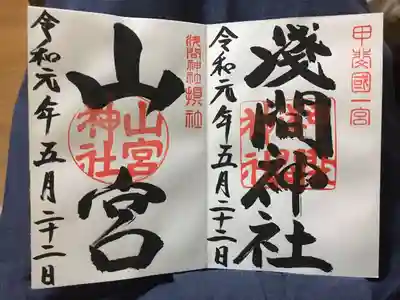 甲斐國一宮
淺間神社
令和元年五月二十二日
浅間神社摂社
山宮
山宮神社
令和元年五月二十二日